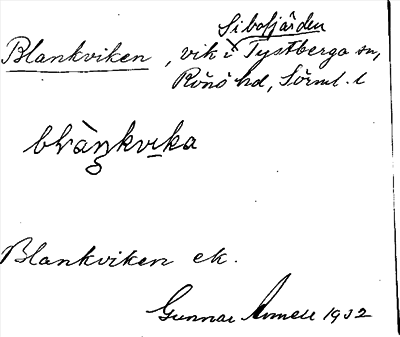 Sibofjärden
Blankviken, vik i Tystberga sn,
Rönö hd, Sörml. l
blàŋkvika
Blankviken ek.
Gunnar Annell 1932